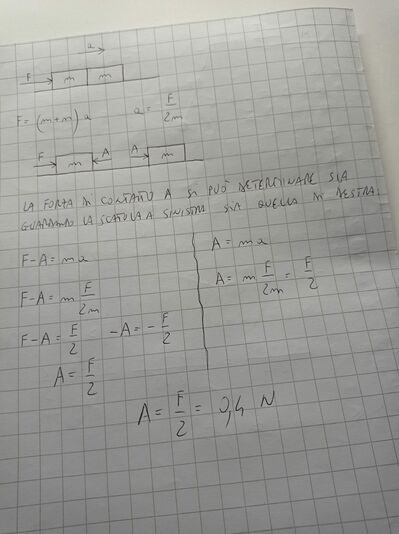 a
F m m
F = (m+m) a a = F/2m
F m A A m
LA FORZA DI CONTATTO A SI PUÒ DETERMINARE SIA
GUARDANDO LA SCATOLA A SINISTRA SIA QUELLA DI DESTRA:
F-A = ma A = ma
F-A = m F/2m A = m F/2m = F/2
F-A = F/2 -A = -F/2
A = F/2
A = F/2 = 0,4 N